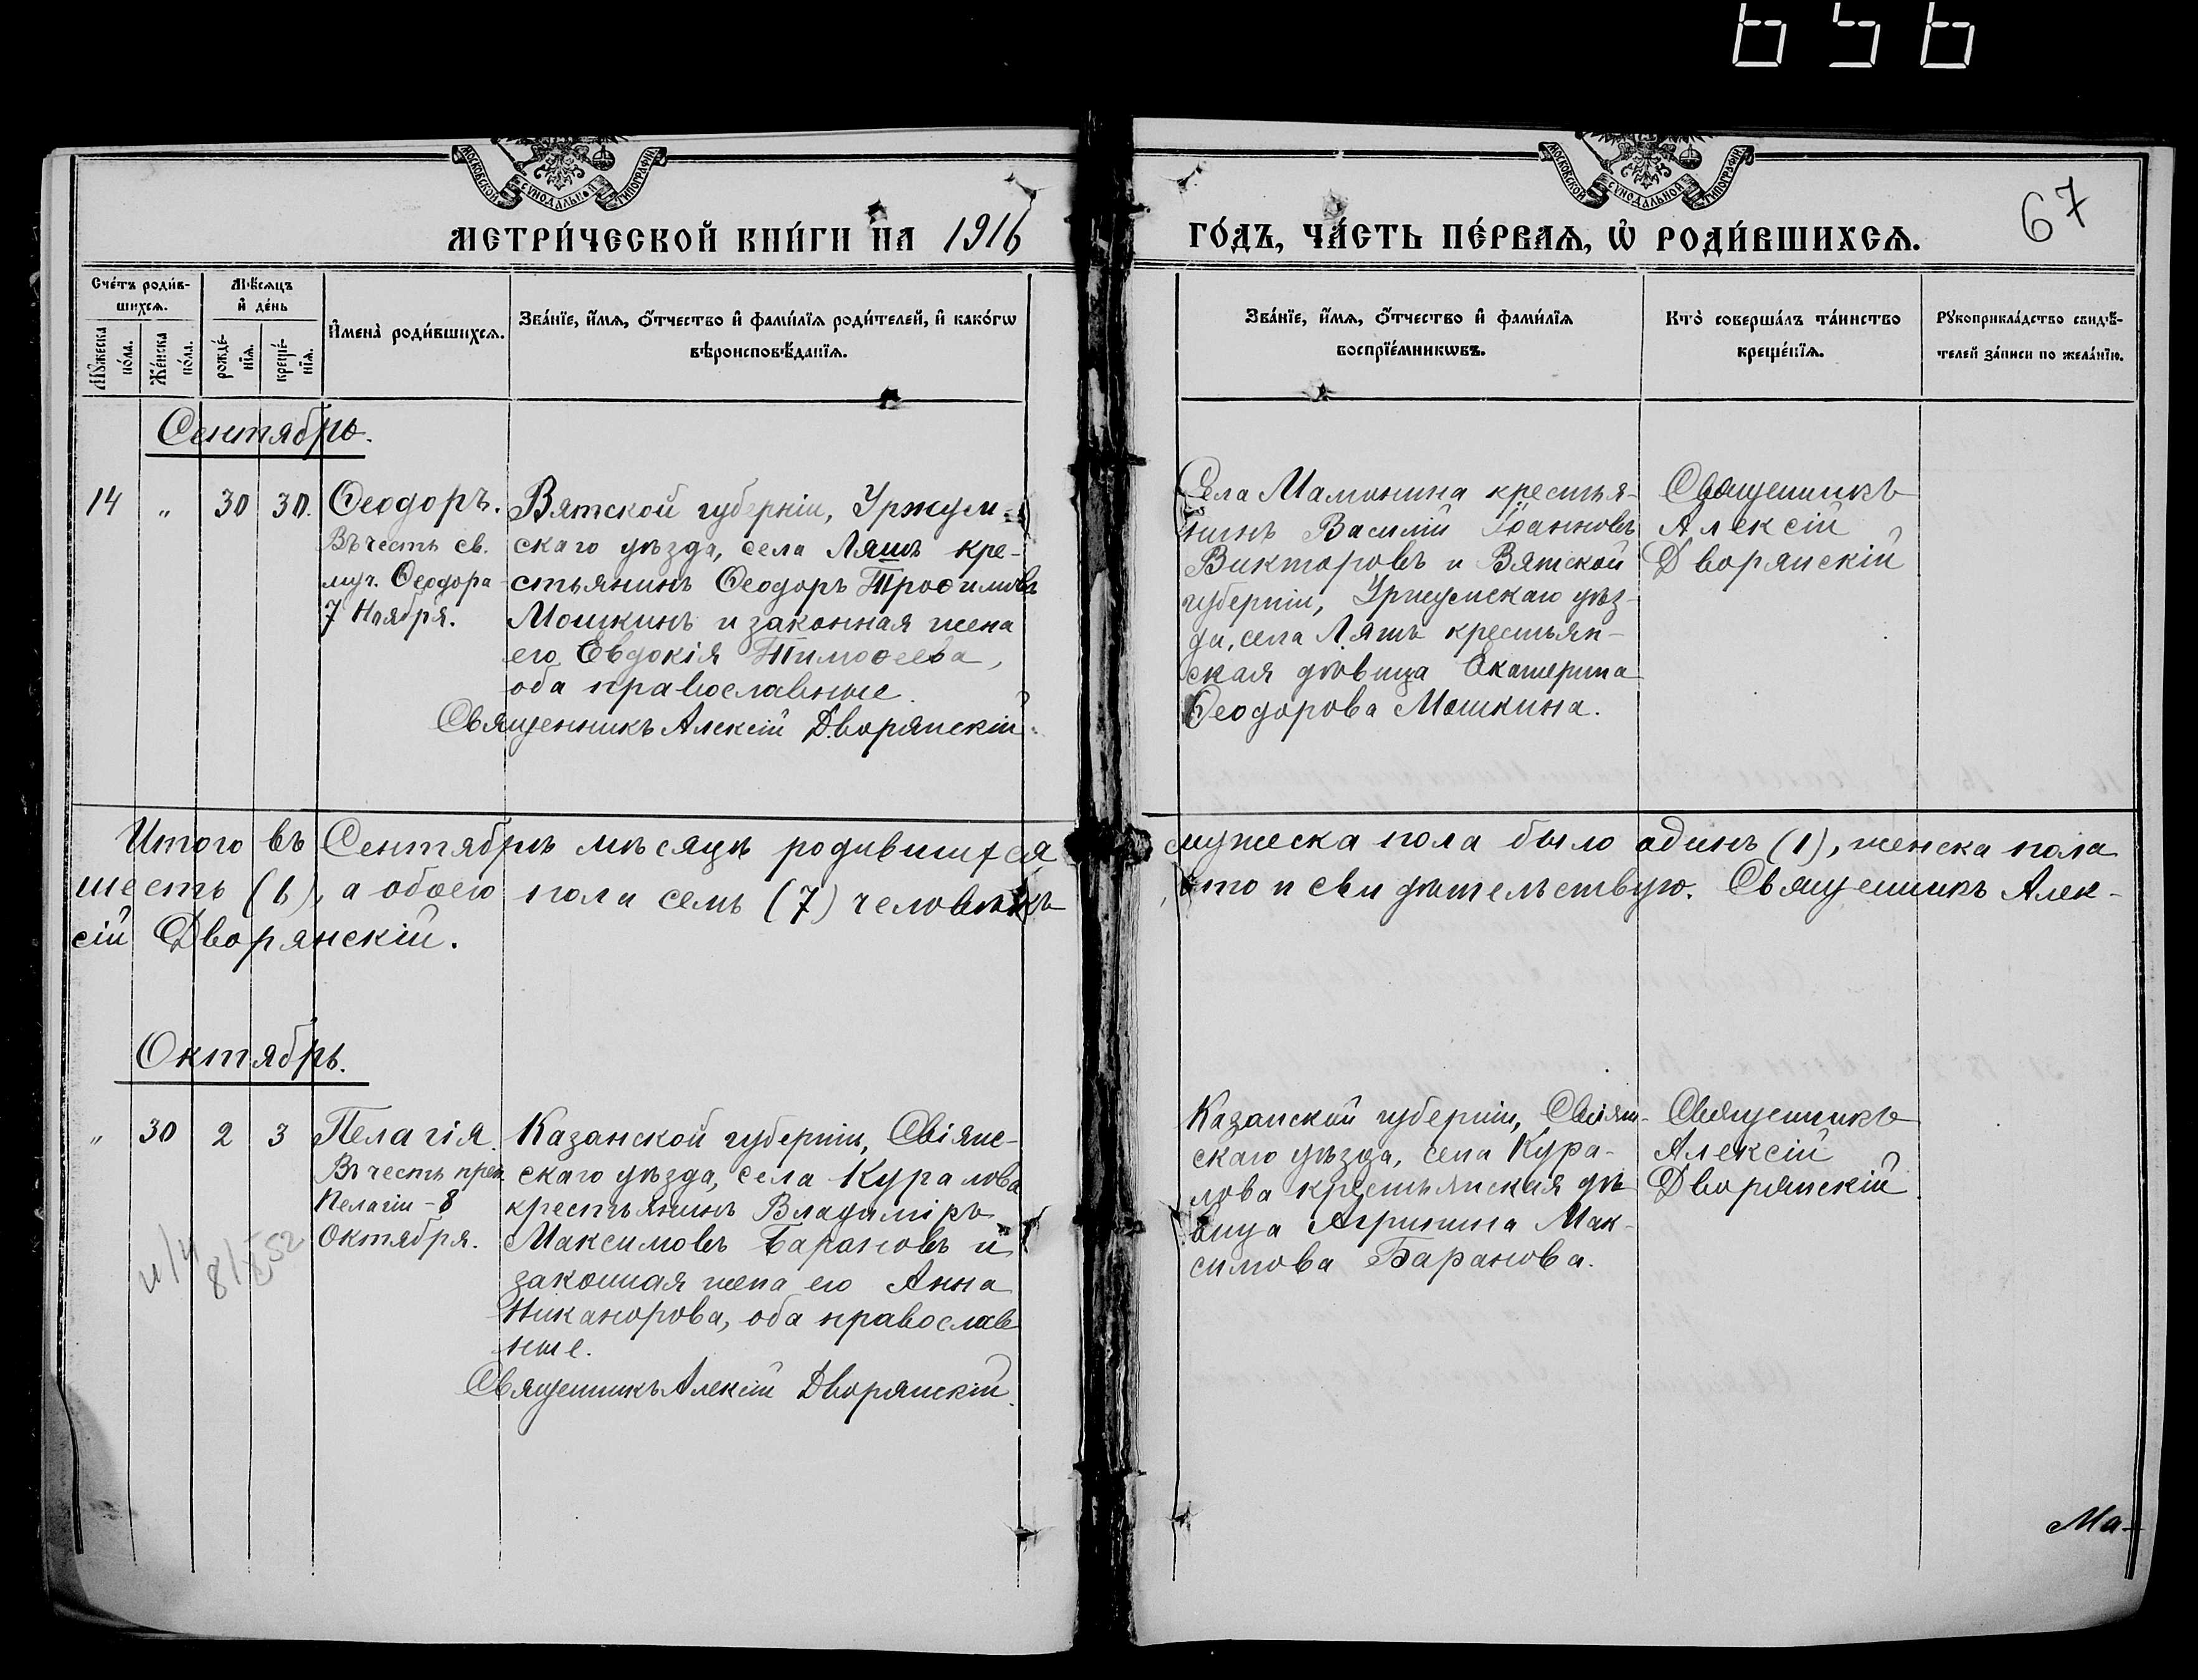 656
МОСКОВСКОЙ СѴНОДАЛЬНОЙ ТИПОГРАФІИ
МОСКОВСКОЙ СѴНОДАЛЬНОЙ ТИПОГРАФІИ
67
МЕТРИ́ЧЕСКОЙ КНИ́ГИ НА 1916
ГО́ДЪ, ЧА́СТЬ ПЕ́РВАѦ, Ѡ҆ РОДИ́ВШИХСѦ.
Сче́тъ роди́в-
шихсѧ.
Мѣ́сѧцъ
и҆ де́нь
Мꙋ́жеска
по́ла.
Же́нска
по́ла.
рожде́-
нїѧ.
креще́-
нїѧ.
И҆мена̀ роди́вшихсѧ.
Зва́нїе, и҆́мѧ, ѻ҆́тчество и҆ фами́лїѧ роди́телей, и҆ како́гѡ
вѣроисповѣ́данїѧ.
Зва́нїе, и҆́мѧ, ѻ҆́тчество и҆ фами́лїѧ
воспрїе́мникѡвъ.
Кто̀ соверша́лъ та́инство
креще́нїѧ.
Рꙋкоприкла́дство свидѣ́-
телей за́писи по жела́нїю.
Сентябрь.
14 „ 30 30.
Ѳеодоръ.
Въ честь св.
муч. Ѳеодора
7 Ноября.
Вятской губерніи, Уржум-
скаго уѣзда, села Ляжъ кре-
стьянинъ Ѳеодоръ Трофимовъ
Мошкинъ и законная жена
его Евдокія Тимоѳеева,
оба православные.
Священникъ Алексій Дворянскій.
Села Мамонина крестья-
нинъ Василій Іоанновъ
Викторовъ и Вятской
губерніи, Уржумскаго уѣз-
да, села Ляжъ крестьян-
ская дѣвица Екатерина
Ѳеодорова Мошкина.
Священникъ
Алексій
Дворянскій
Итого въ Сентябрѣ мѣсяцѣ родившихся мужеска пола было одинъ (1), женска пола
шесть (6), а обоего пола семь (7) человѣкъ, что и свидѣтельствую. Священникъ Алек-
сій Дворянскій.
Октябрь.
„ 30 2 3
Пелагія.
Въ честь преп.
Пелагіи - 8
Октября.
Казанской губерніи, Свіяж-
скаго уѣзда, села Куралова
крестьянинъ Владиміръ
Максимовъ Барановъ и
законная жена его Анна
Никанорова, оба православ
ные.
Священникъ Алексій Дворянскій.
Казанской губерніи, Свіяж-
скаго уѣзда, села Кура-
лова крестьянская дѣ-
вица Агрипина Мак-
симова Баранова.
Священникъ
Алексій
Дворянскій
Ма-